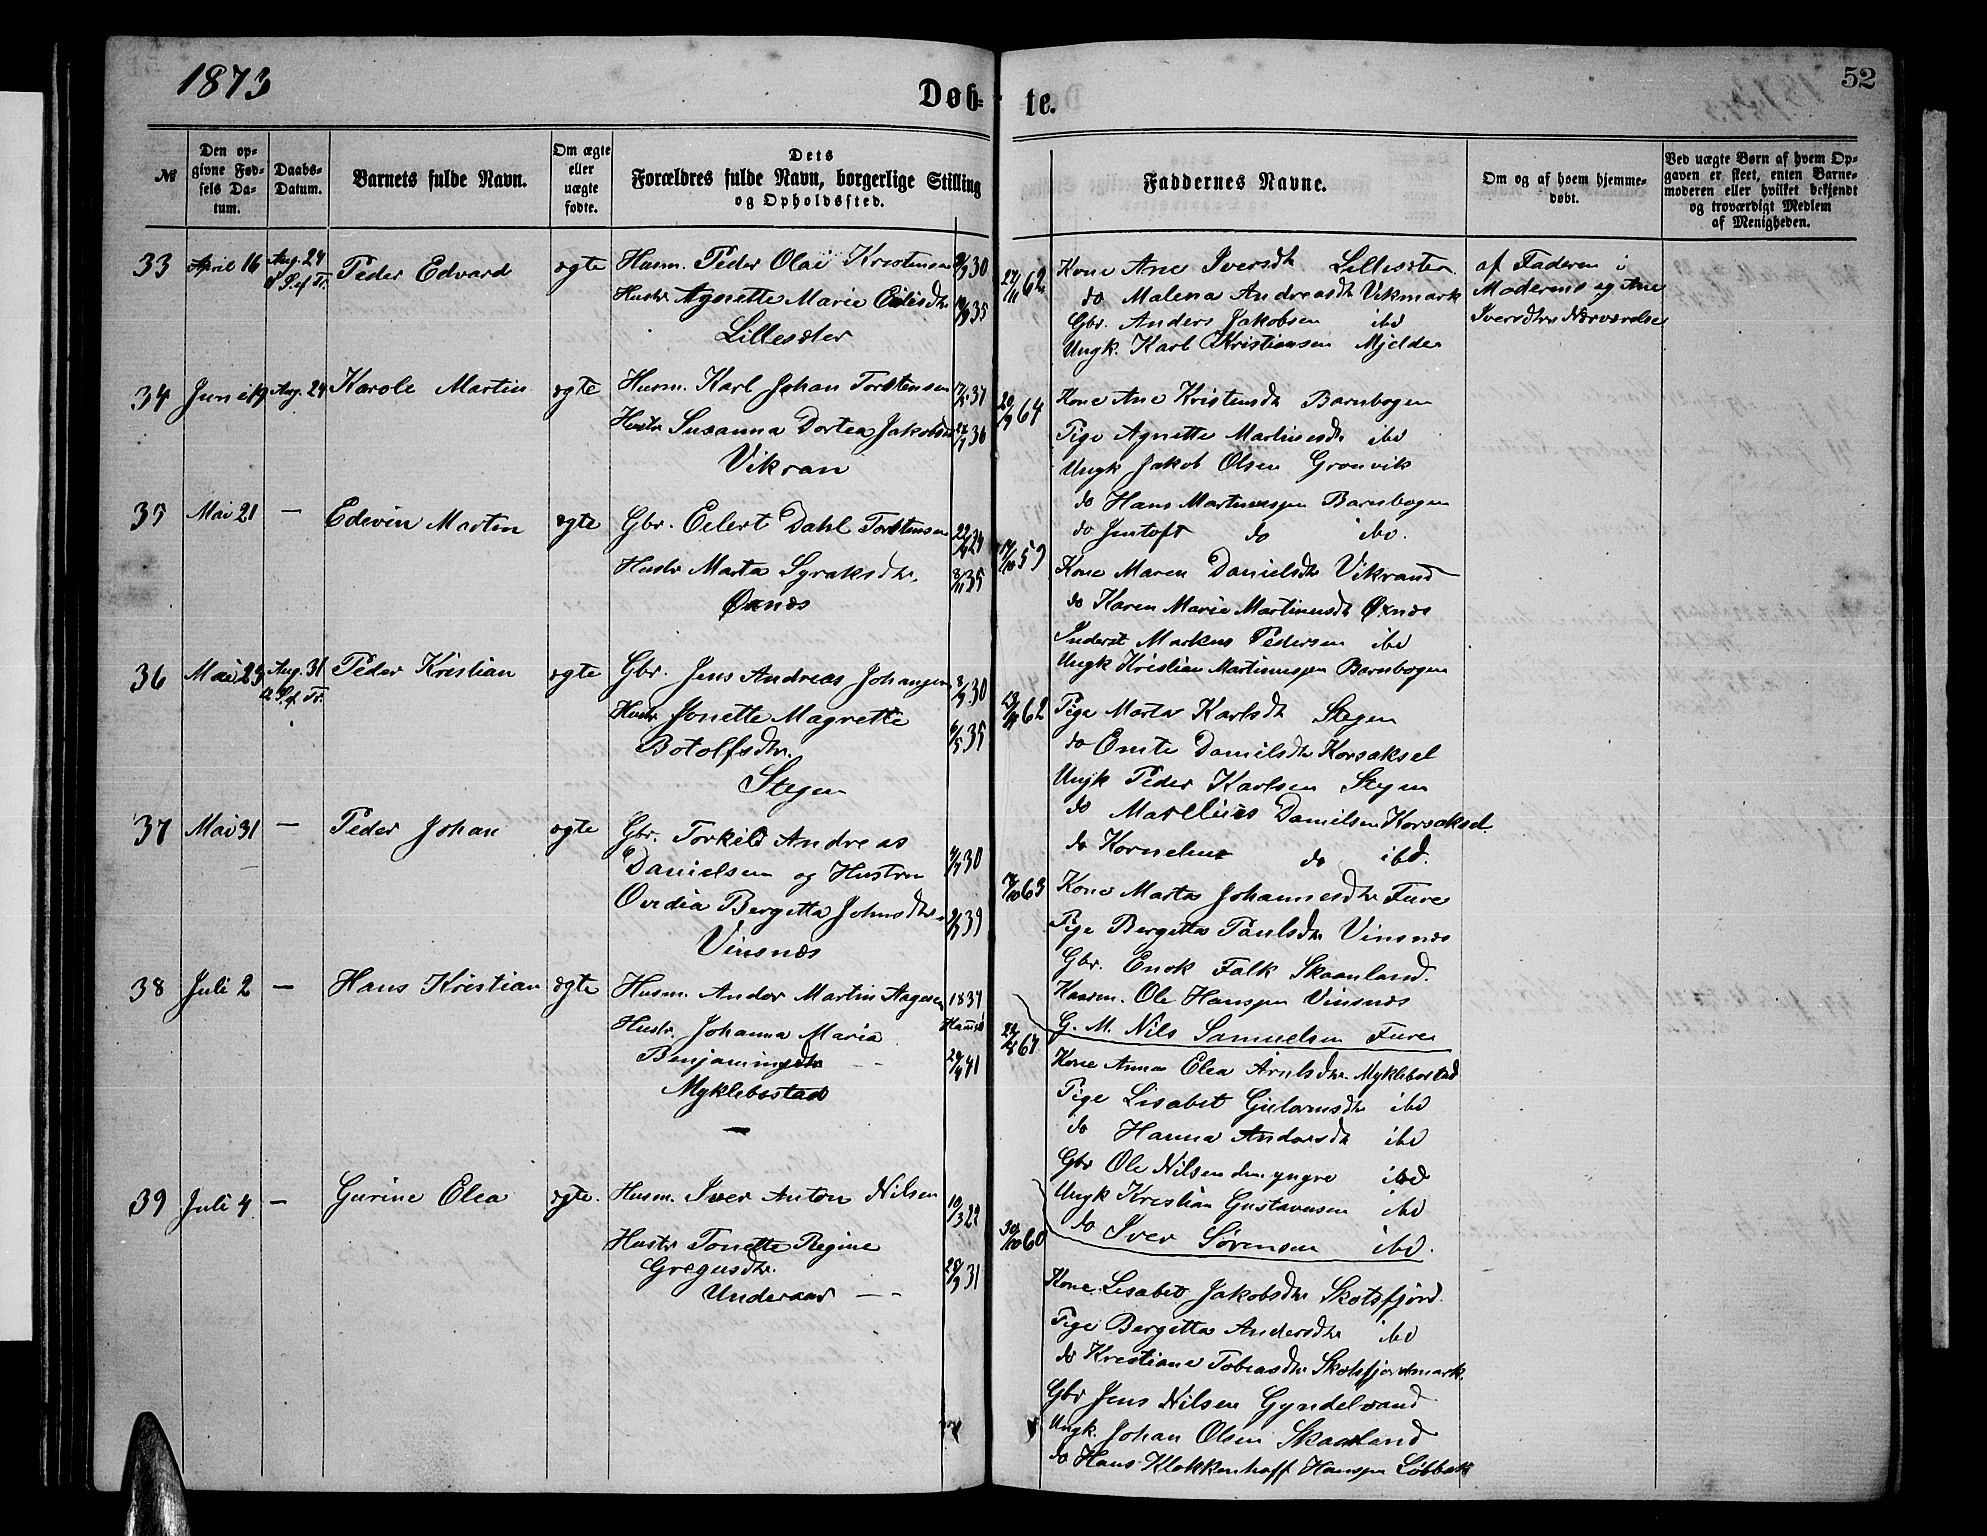 1873
Døb-
te.
52
№
Den op-
givne Fød-
sels Da-
tum.
Daabs-
Datum.
Barnets fulde Navn.
Om ægte
eller
uægte
fødte.
Dets
Forældres fulde Navn, borgerlige Stilling
og Opholdssted.
Faddernes Navne.
Om og af hvem hjemme-
døbt.
Ved uægte Børn af hvem Op-
gaven er skeet, enten Barne-
moderen eller hvilket bekjendt
og troværdigt Medlem
af Menigheden.
33 April 16 Aug. 24 Peder Edvard ægte Husm. Peder Olai Kristensen 30
Hustr Agnette Marie 35
Lillesæter
62 Kone Ane Iversdtr Lillesæter
do Malena Andreasdtr Vikmark
Gbr. Anders Jakobsen ibd
Ungk. Karl Kristiansen Mjelde
af Faderen i
Moderens og Ane
Iversdtrs Nærværelse
34 Juni 19 Aug. 24 Karole Martin ægte Husm. Karl Johan Torstensen 37
Hustr Susanna Dortea Jakobsdtr 36
Vikran
64 Kone Ane Kristensdtr Barnbogen
Pige Agnette Martinesdtr ibd
Ungk Jakob Olsen Grønvik
do Hans Martinussen Barnbogen
do Jentoft do ibd.
35 Mai 21 — Edevin Marten ægte Gbr. Eilert Dahl Torstensen 22/ 24
Hustr Marta Syraksdtr. 35
Øxnæs
59 Kone Maren Danielsdtr Vikrand
do Karen Marie Martinusdtr Øxnæs
Inderst Markus Pedersen ibd
Ungk Kristian Martinussen Barnbogen
36 Mai 23 Aug. 31 Peder Kristian ægte Gbr. Jens Andreas Johansen 30
Hustr Jonette Magrette
Botolfsdtr. 35
Stegen
62 Pige Marta Karlsdtr Stegen
do Emte Danielsdtr Korsaksel
Ungk Peder Karlsen Stegen
do Marelius Danielsen Korsaksel
do Kornelius do ibd.
37 Mai 31 — Peder Johan ægte Gbr. Torkild Andreas
Danielsen og Hustru 30
Ovidia Bergetta Johnsdtr. 39
Vinsnæs
63 Kone Marta Johannesdtr Fure
Pige Bergitta Paulsdtr Vinsnæs
Gbr. Enok Falk Skaanland.
Husm. Ole Hansen Vinsnæs
G. M. Nils Samuelsen Fure
38 Juli 2 — Hans Kristian ægte Husm. Andor Martin Aagesen 1837
Hustr Johanna Maria
Benjaminsdtr — 41
Myklebostad
67 Kone Anna Elea Arntsdtr Myklebostad
Pige Lisabet ibd
do Hanna Andorsdtr ibd
Gbr Ole Nilsen den yngre ibd
Ungk Kristian Gustavusen ibd
do Iver Sørensen ibd.
39 Juli 4 — Gurine Elea ægte. Husm. Iver Anton Nilsen 10/3 22
Hustr Tonette Regine
Gregusdtr. 31
Underaas —
60
Kone Lisabet Jakobsdtr Skotsfjord.
Pige Bergitta Andersdtr ibd
do Kristiane Tobiasdtr Skotsfjordmark.
Gbr Jens Nilsen Gyndelvand
Ungk. Johan Olsen Skaanland
do Hans Klokkenhoff Hansen Løbbak